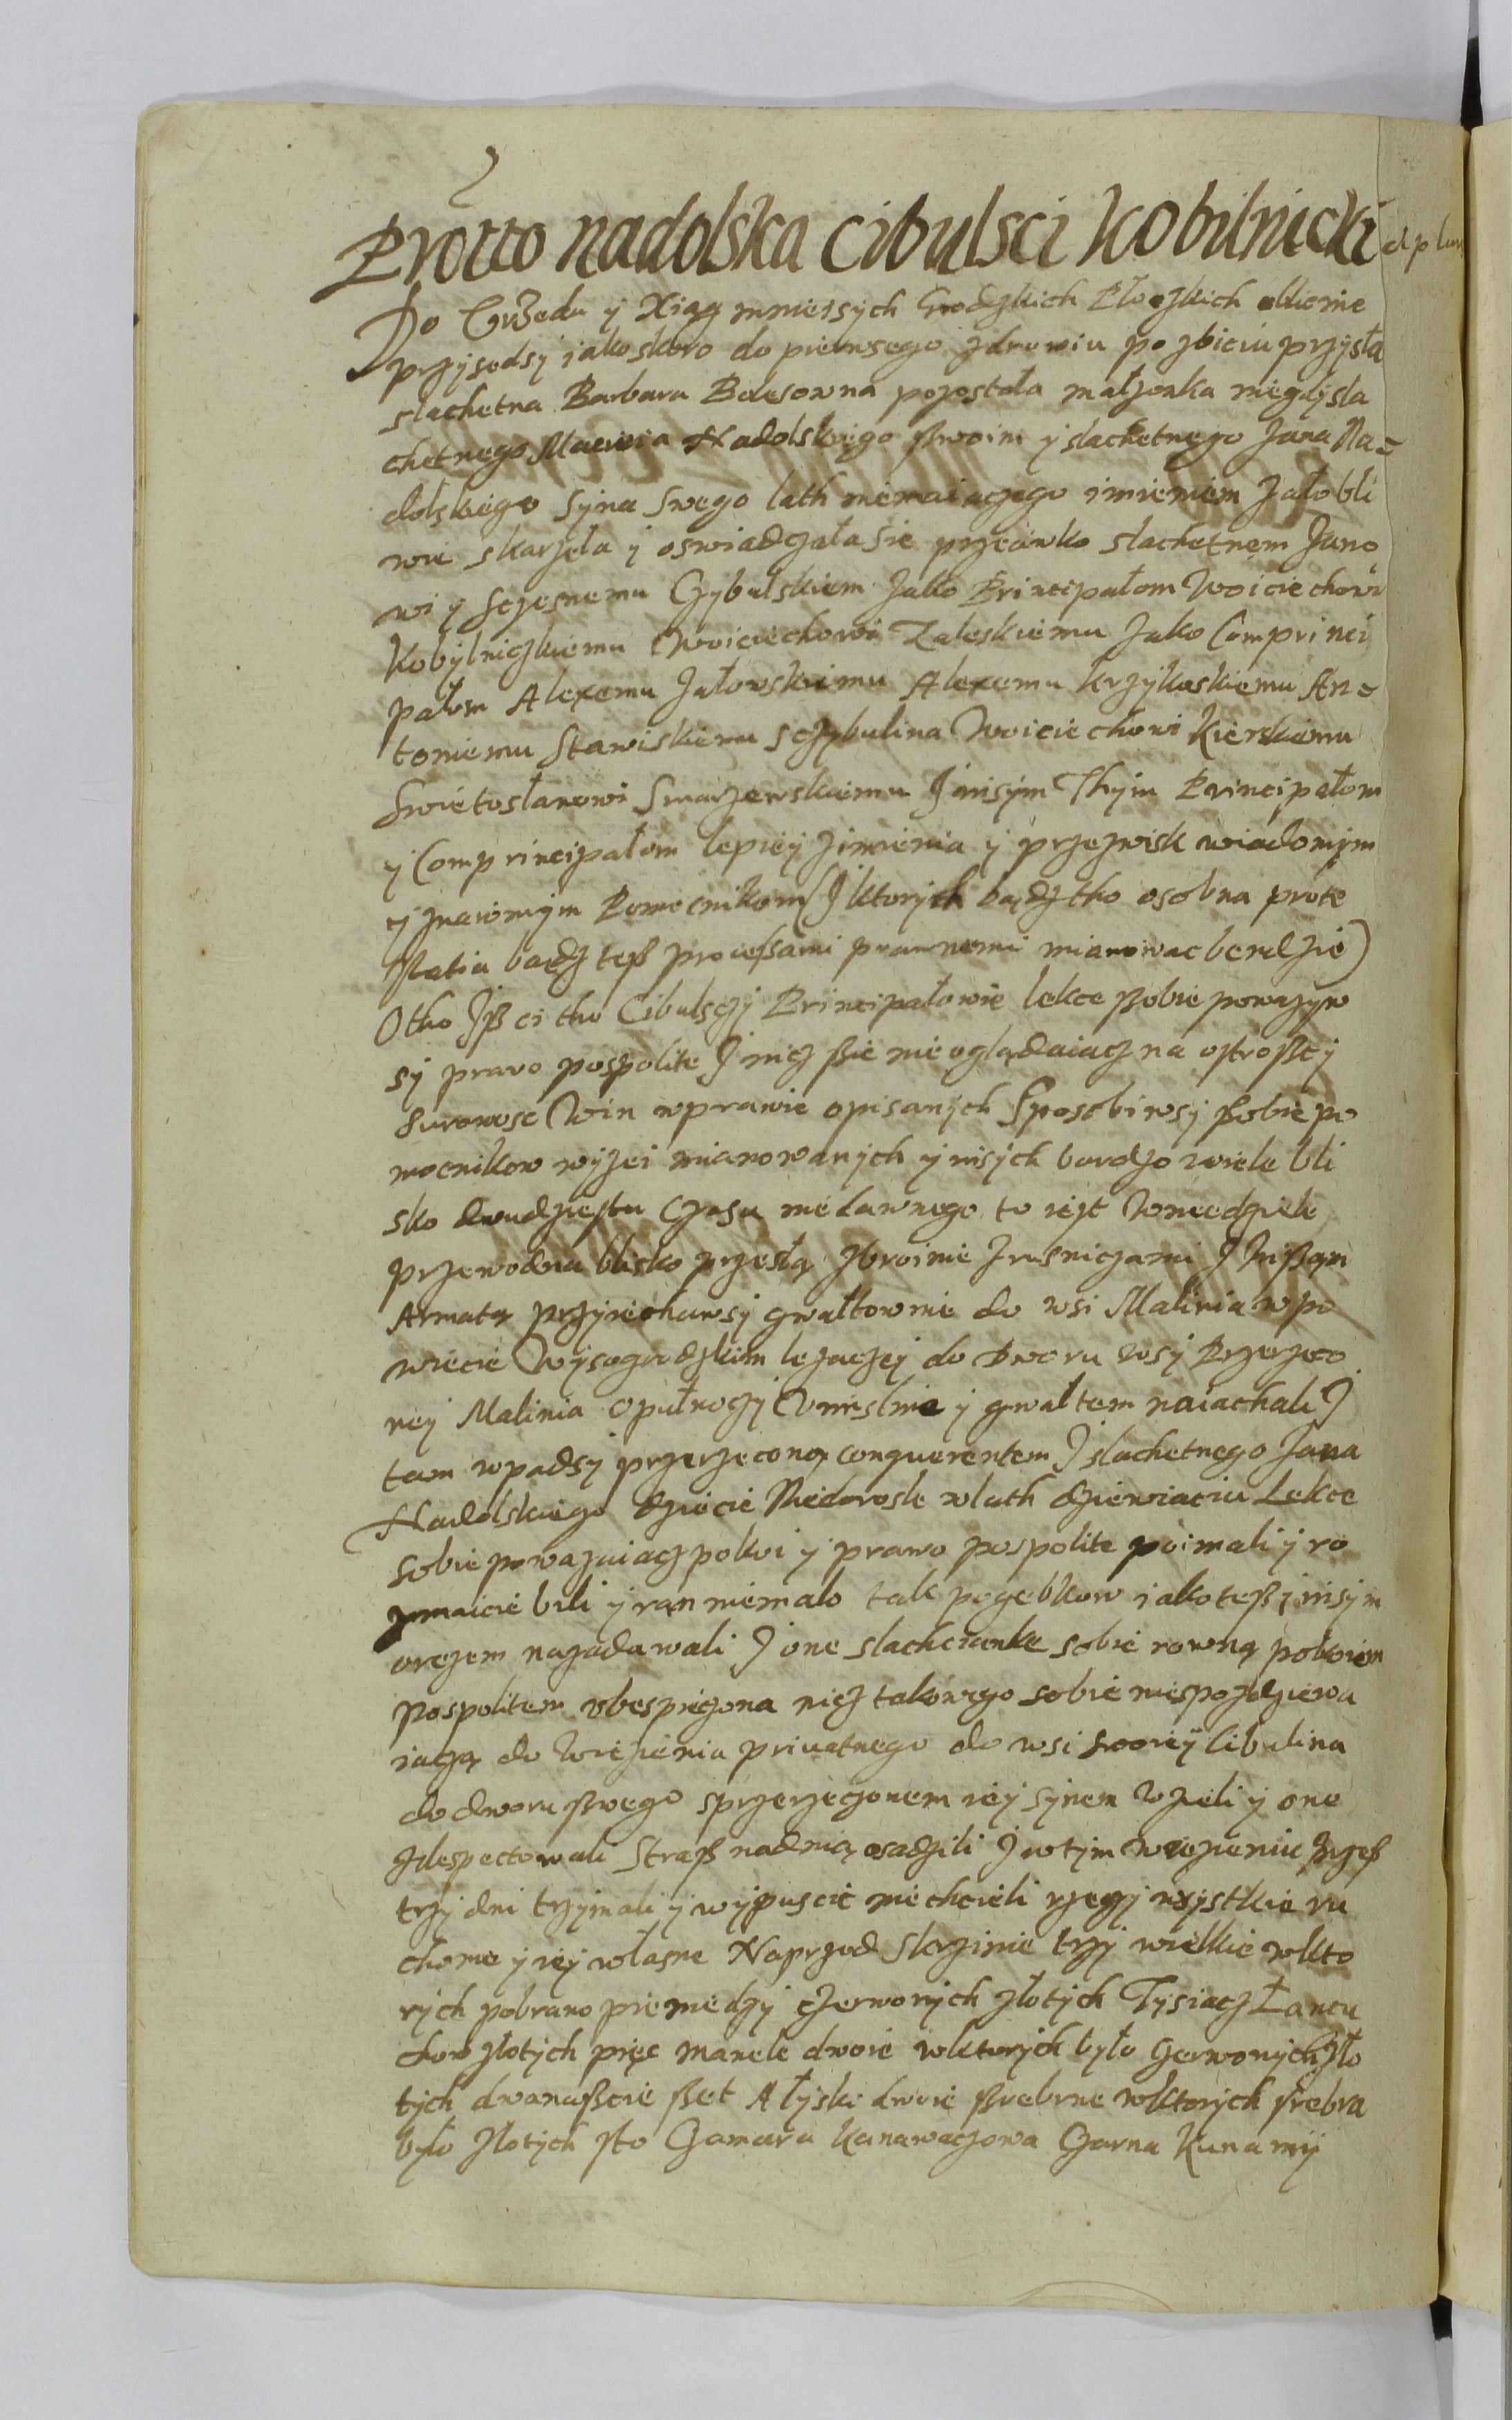 Protto nadolska cibulsci Kobilnicki
Do Vrzedu y Xiąg ninieisych Grodzkich Płoczkich oblicznie
przysedsy iako skoro do pierwsego zdrowiu po zbiciu przysła
slachetna Barbara Bolesowna pozostała małzonka niegdy sla
chetnego Macieia Nadolskiego swoim y slachetnego Jana Na=
dolskiego syna swego lath niemaiączego imieniem Załobli
wie skarzeła y oswiadczała sie przeciwko slachetnem Jano
wi y Sczesnemu Czybulskiem Jako Principałom Woiciechowi
Kobylniczkiemu Woiciechowi Zaleskiemu Jako Comprinci
pałom Alexemu Jałowskiemu Alexemu krzykoskiemu An=
toniemu Stawiskiemu sczybulina Woiciechowi Kierskiemu
Swietosławowi Smarzewskiemu J inisym Thym Principałom
y Comprincipałom lepiey z imienia y przezwisk wiadomym
y znaiomym Pomocnikom (J ktorych bądz tho osobna prote
statia bądz tesz procesami prawnemi mianowac bendzie)
Otho Jsz ci tho Cibulsczy Principałowie lekce sobie powazyw
sy prawo pospolite J nicz sie nie oglądaiacz na ostrosc y
surowosc Win wprawie opisanych Sposobiwsy sobie po
mocnikow wyzei mianowanych y inisych bardzo wiele bli
sko dwudziestu Czasu niedawnego to iest Wniedziele
przewodnia blisko przesłą zbroinie Zrusniczami J Inszą
Armatą przyiechawsy gwałtownie do wsi Malinia wpo
wiecie Wysogrodzkim lezaczey do Dworu wsy Przerzeco
ney Malinia opułnoczy Vmislnie y gwałtem naiachali J
tam wpadsy przerzeconą conquerentem J slachetnego Jana
Nadolskiego dziecie Niedorosle wlath dziewiaciu Lekce
sobie powazaiacz pokoi y prawo pospolite poimali y ro
zmaicie bili y ran niemalo tak pogebkow iako tesz y inisym
orezem nazadawali J one slachcianke sobie rowną pokoiem
Pospolitem vbespieczona nicz takowego sobie niespodziewa
iaczą do wiezienia priuatnego do wsi swoiey Cibulina
do dworu swego sprzerzeczonem iey synem Wzieli y one
zdespectowali Strasz nadnią osadzili J wtym wiezieniu przesz
trzy dni trzymali y wypuscic niechcieli rzeczy wsystkie ru
chome y iey własne Naprzod Skrzinie trzy wielkie wkto
rych pobrano pieniedzy czerwonych złotych Tysiacz Łancu
chow złotych pięc Manele dwoie wktorych było Czerwonych Zło
tych dwanascie szet Ałyski dwoie srebrne wktorych srebra
było złotych sto Czamara kanawaczowa Czarna Kunamy